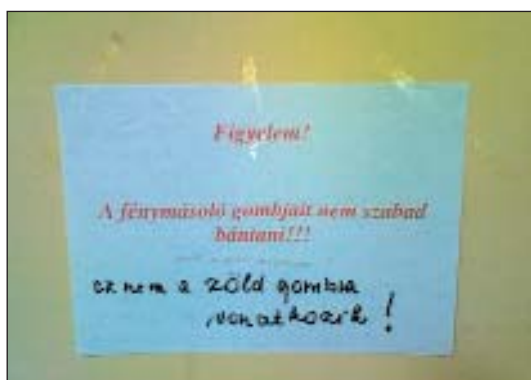 Figyelem!
A fénymásoló gombjait nem szabad
bántani!!!
ez nem a zöld gombra
vonatkozik!